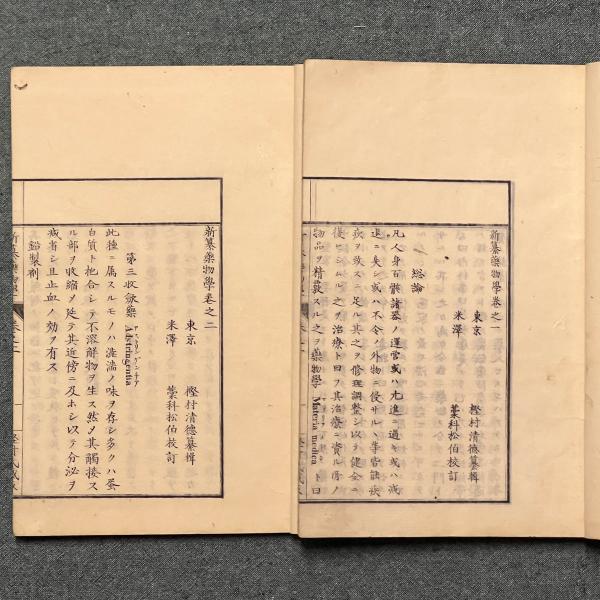 新纂藥物學卷之一
東京 樫村清德纂輯
米澤 藁科松伯校訂
總論
凡人身百骸諸器ノ運營或ハ亢進ニ過キ或ハ減
退ニ失シ或ハ不令ノ外物ニ侵サル丶等皆能疾
病ヲ致スニ足ル其之ヲ修理調整シ以テ健全ニ
復セシムル之ヲ治療ト曰フ其治療ニ資ル所ノ
物品ヲ精覈スル之ヲ藥物學 Materia medica ト曰
新纂藥物學卷之二
東京 樫村清德纂輯
米澤 藁科松伯校訂
第三收斂藥 アドストリンゲンチア Adstringentia
此種ニ属スルモノハ澁濇ノ味ヲ存シ多クハ蛋
白質ト抱合シテ不溶解物ヲ生ス然メ其觸接ス
ル部ヲ收縮メ延テ其近傍ニ及ホシ以テ分泌ヲ
減省シ且止血ノ効ヲ有ス
鉛製劑
新纂藥物學 卷之二